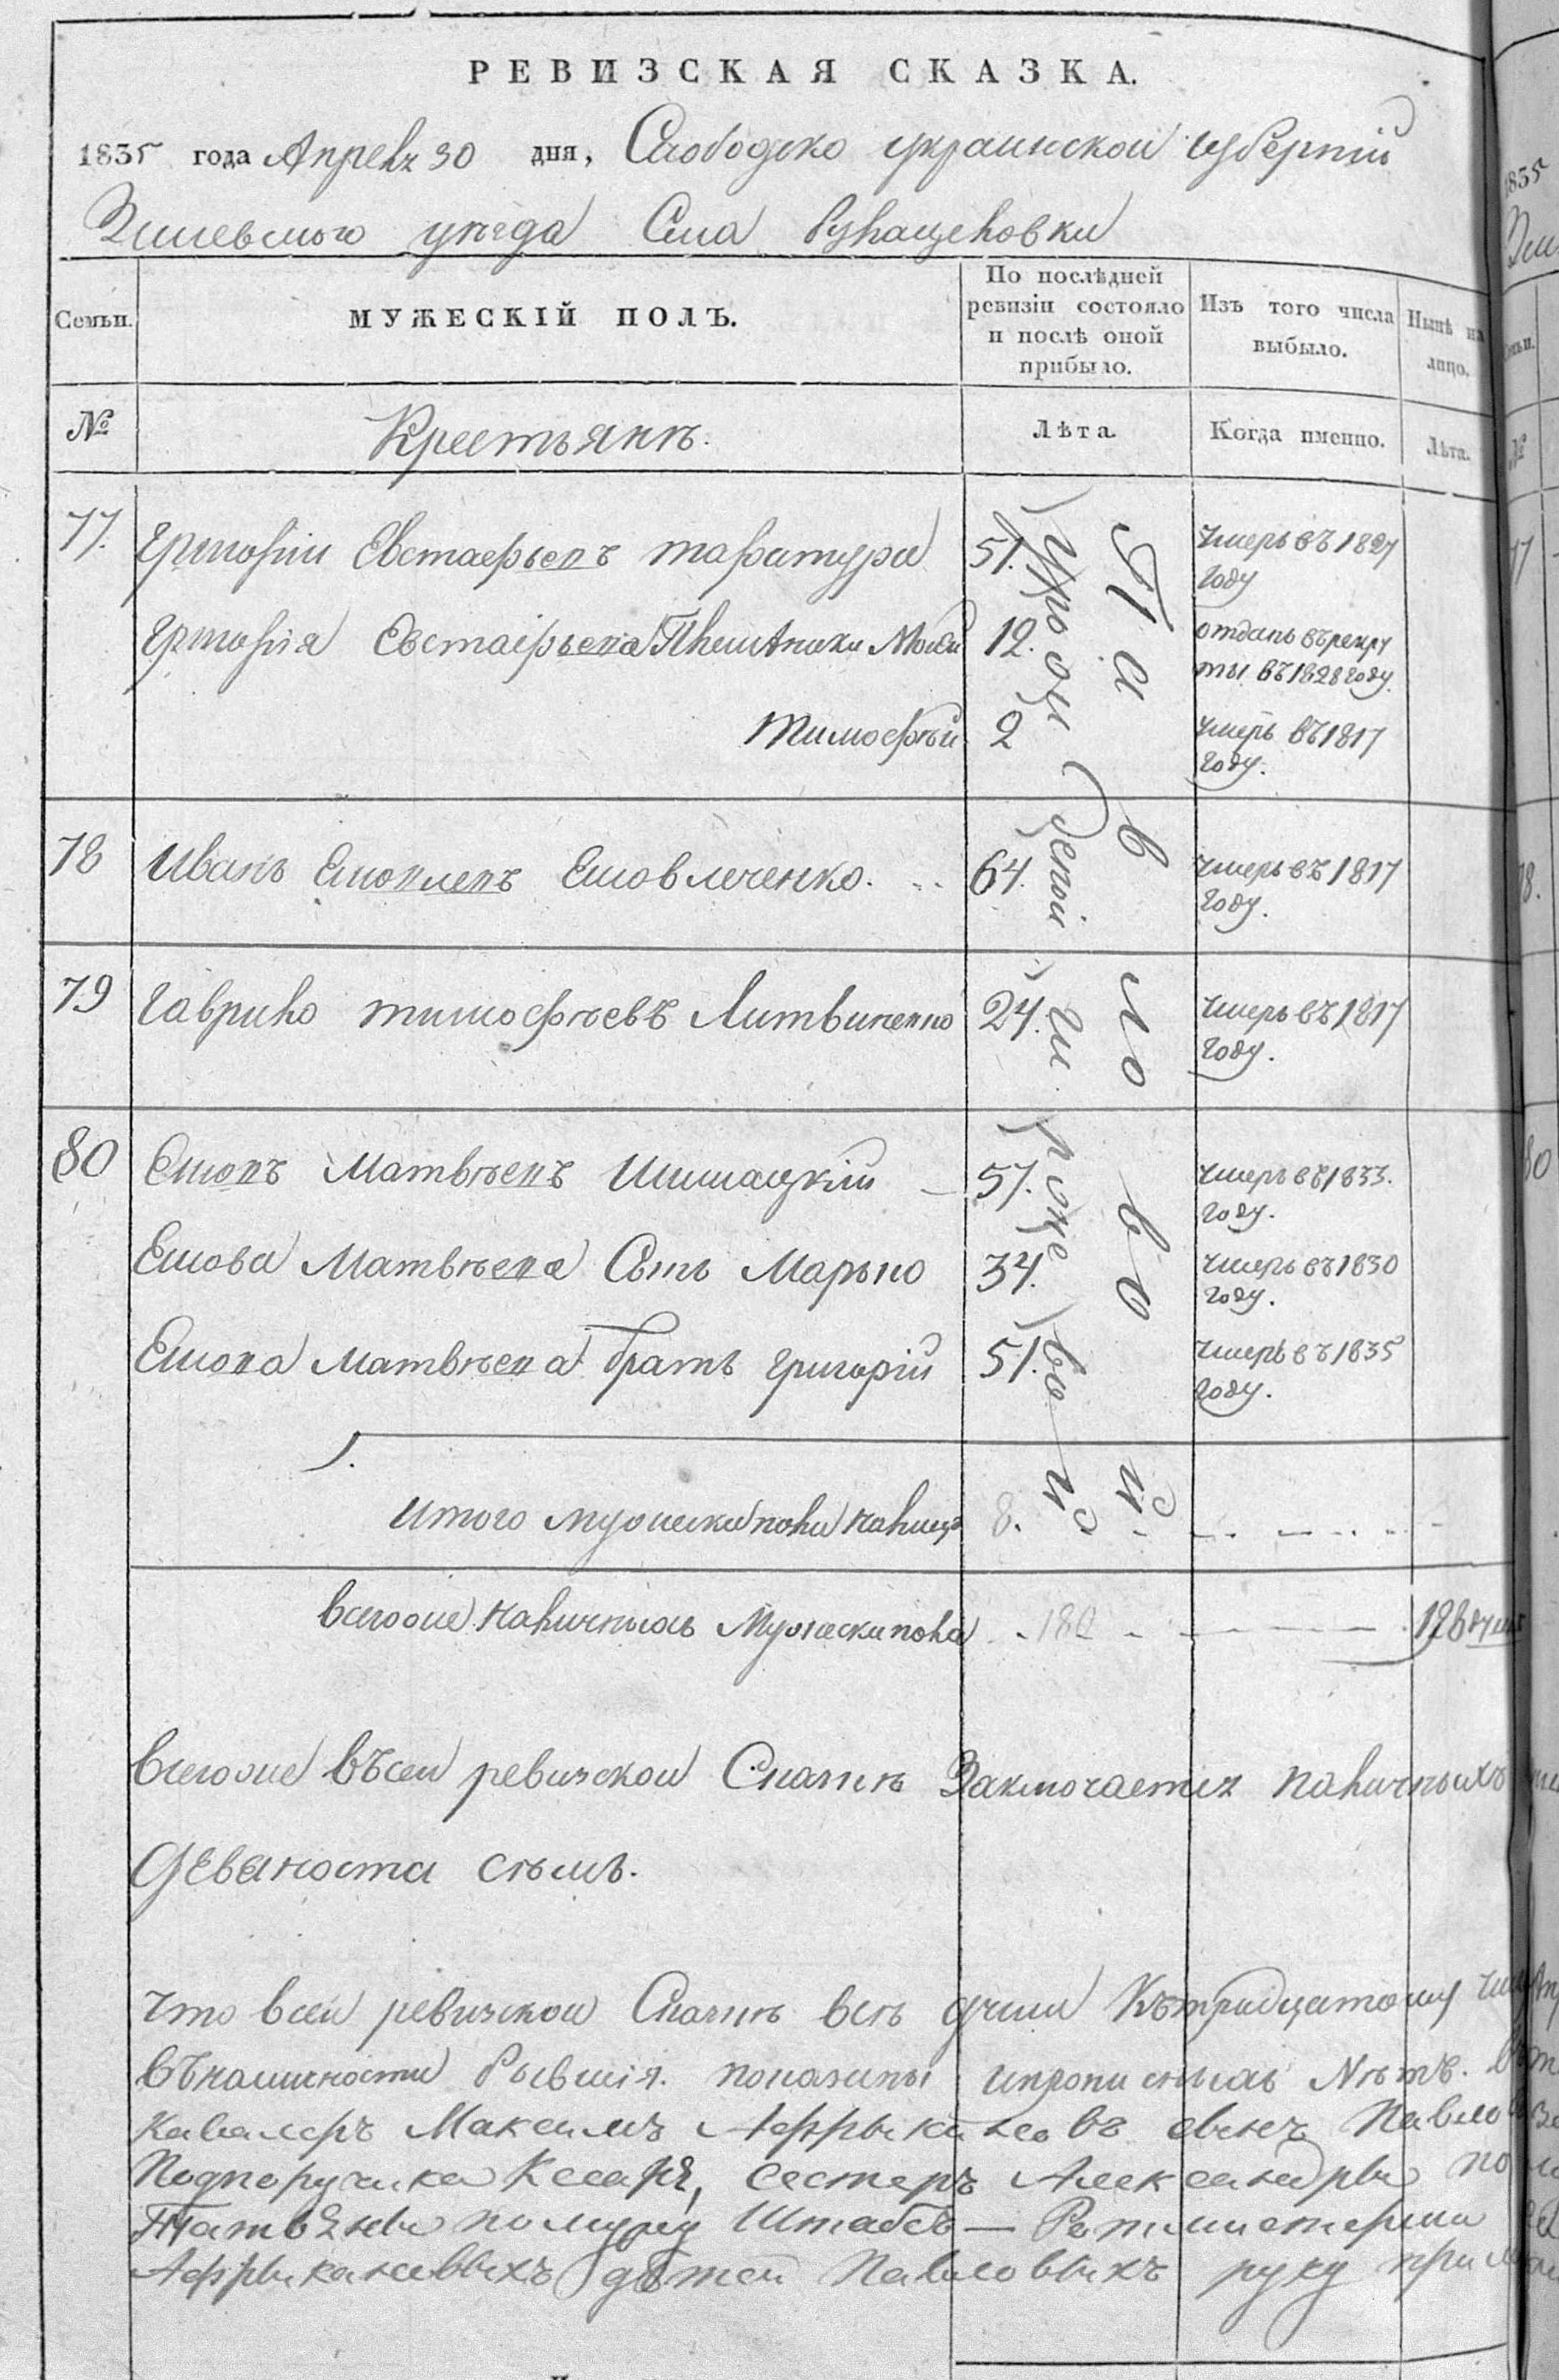 РЕВИЗСКАЯ СКАЗКА.
1835 года Апреля 30 дня, Слободско украинской губернии
Змиевского уезда Села
Семьи.
МУЖЕСКІЙ ПОЛЪ.
По послѣдней ревизіи состояло и послѣ оной прибыло.
Изъ того числа выбыло.
Нынѣ на лицо.
№
Крестьянъ.
Лѣта.
Когда именно.
Лѣта.
77. Григорий Евстафьевъ таратура 51. умеръ въ 1827 году
Григория Евстафьева 12. отданъ въ рекруты въ 1828 году.
тимофѣй 2 умеръ въ 1817 году.
78 Иванъ 64. умеръ въ 1817 году.
79 Гаврило тимофѣевъ Литвиненко 24. умеръ въ 1817 году.
80 Матвѣевъ Шишацкій 57. умеръ въ 1833. году.
Матвѣева Сынъ Марько 34. умеръ въ 1830 году.
Матвѣева братъ григорій 51. умеръ въ 1835 году.
итого мужеска пола налицо 8.
всего же наличныхъ Мужеска пола 180 128 душъ
всего же въ сей ревизской Сказкѣ Заключается наличныхъ
девяноста сѣмъ.
Что всей ревизской Сказкѣ всѣ души Къ тридцатому
въ наличности бывшія. показаны и прописныхъ Нѣтъ.
Кавалеръ Максимъ Аффрикановъ сынъ Павлов
Подпоручика Кесаря, сестеръ Александры по
Татьяны по мужу Штабсъ — Ротмистерши
Аффрикановыхъ дѣтей Павловыхъ руку